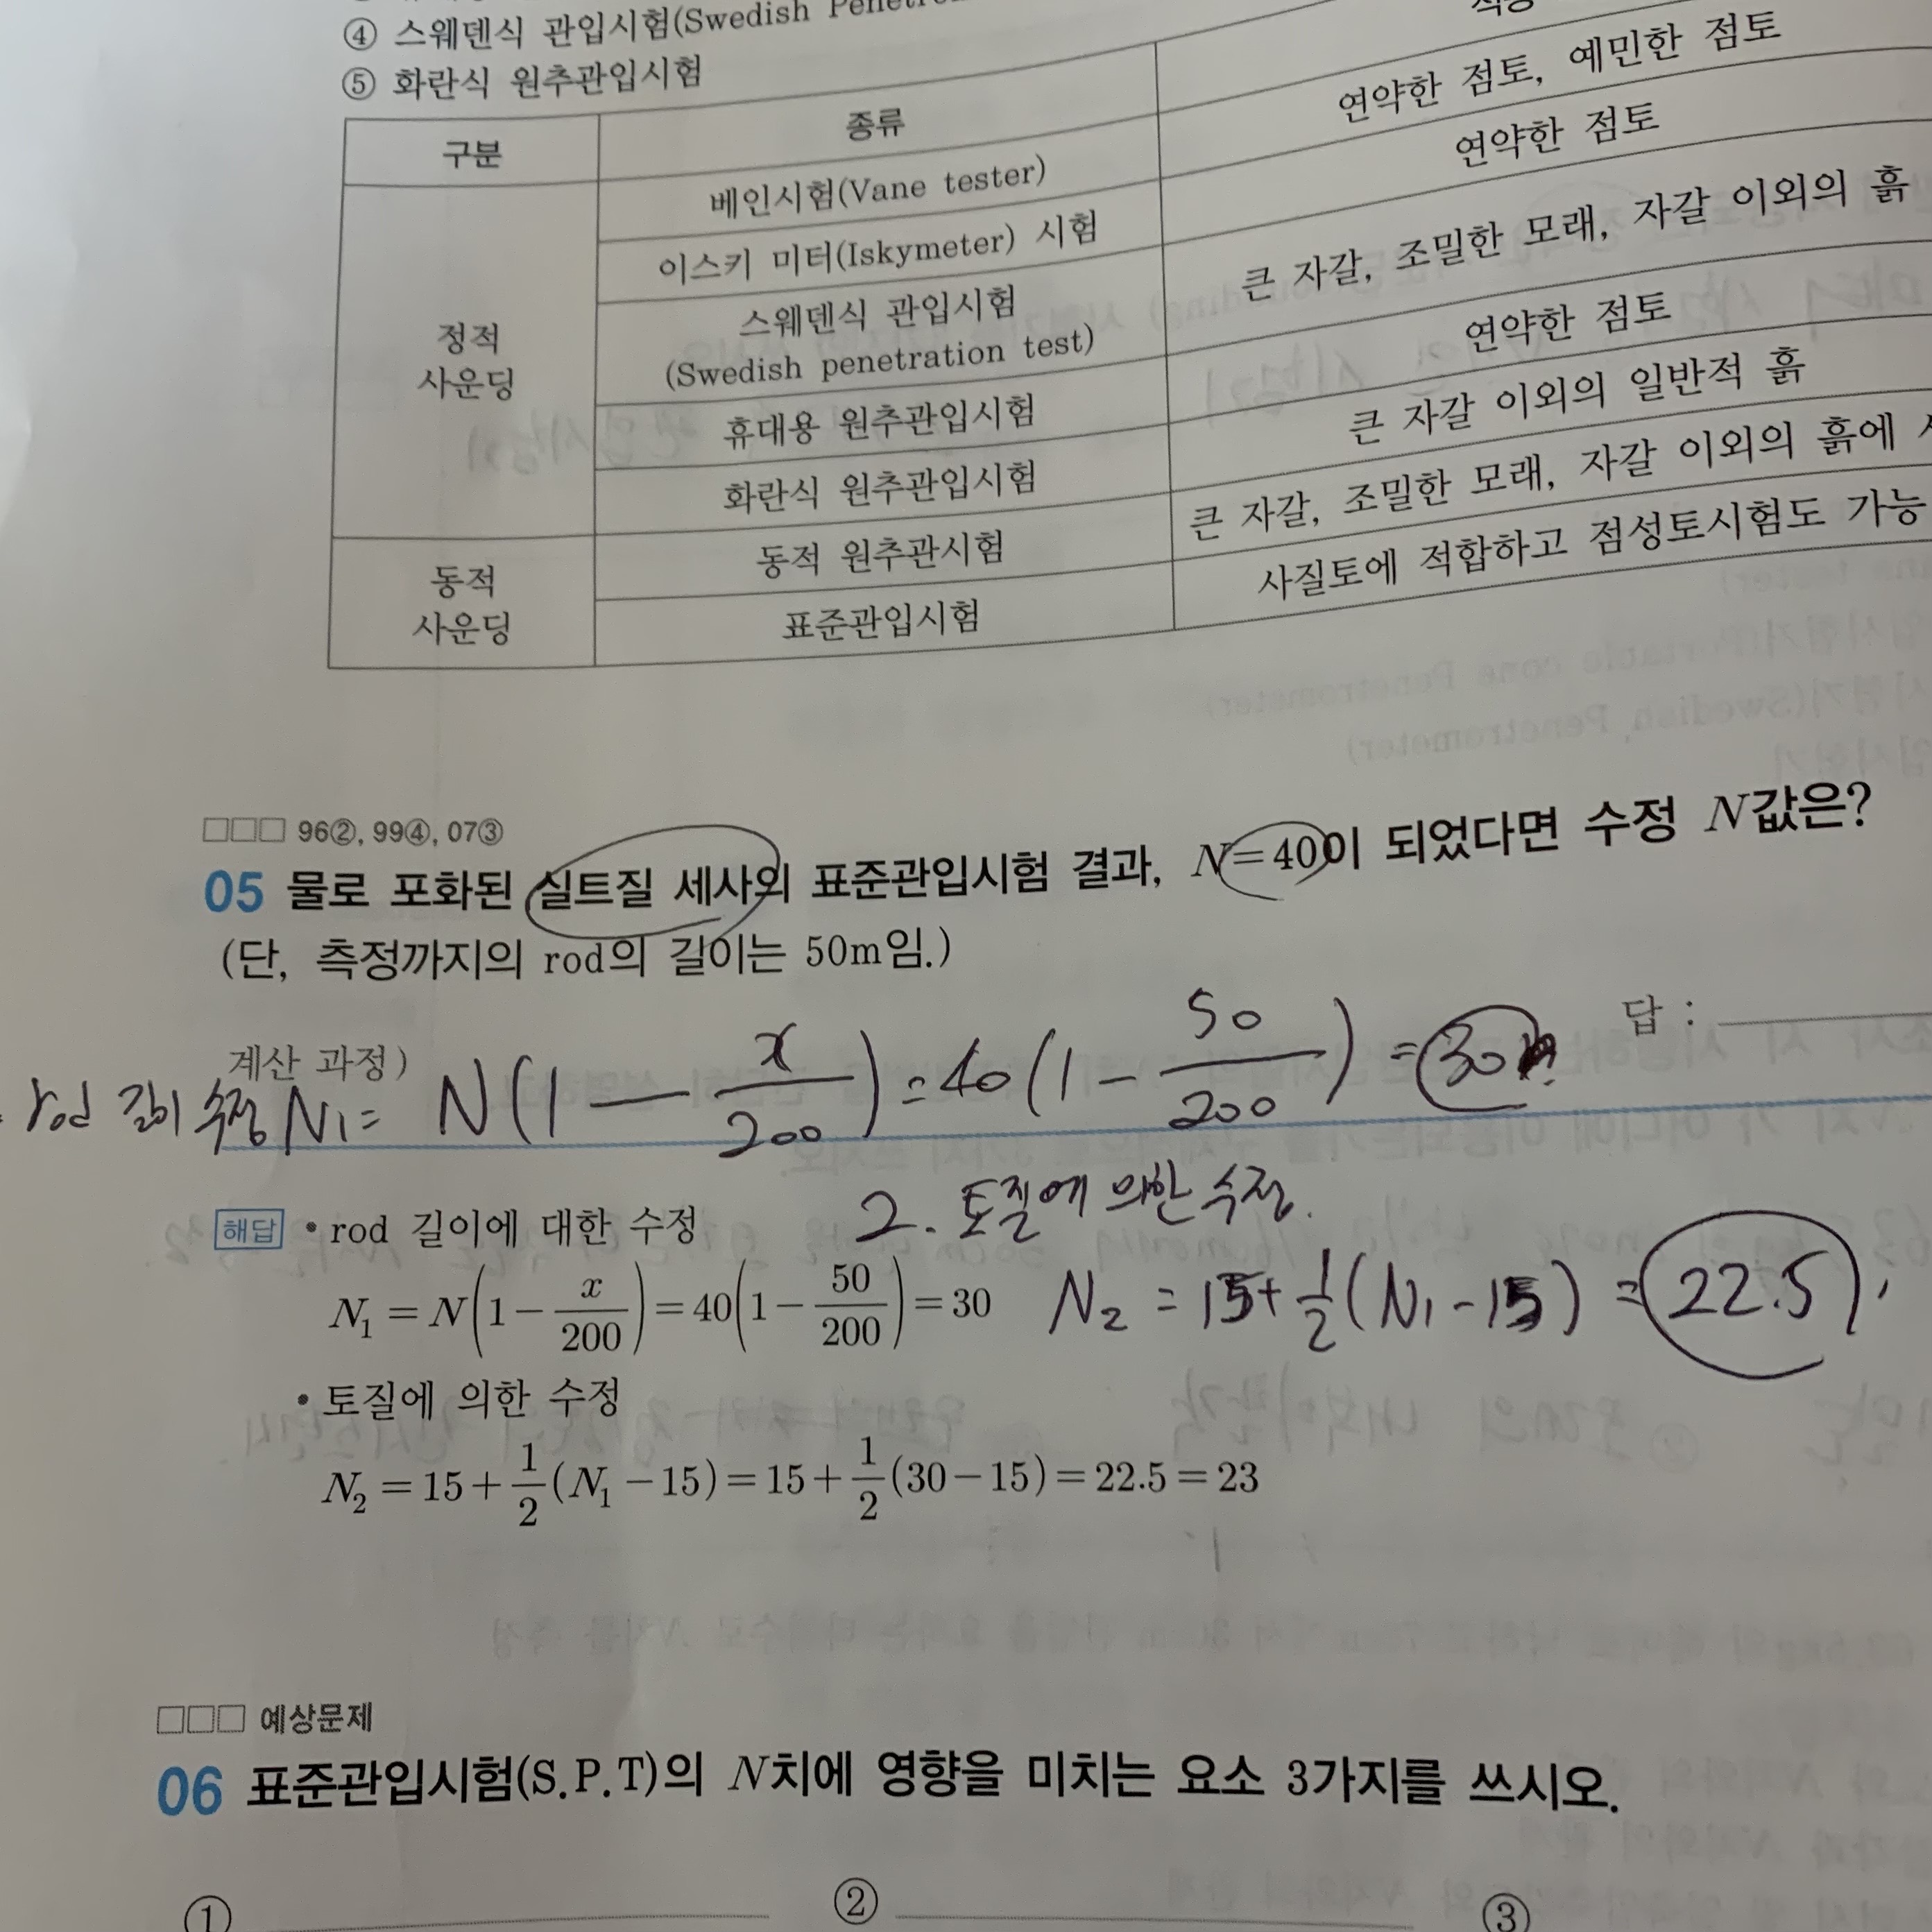 ④ 스웨덴식 관입시험(Swedish
⑤ 화란식 원추관입시험
구분 종류
정적 사운딩
베인시험(Vane tester) 연약한 점토, 예민한 점토
이스키 미터(Iskymeter) 시험 연약한 점토
스웨덴식 관입시험 큰 자갈, 조밀한 모래, 자갈 이외의 흙
(Swedish penetration test)
휴대용 원추관입시험 연약한 점토
화란식 원추관입시험 큰 자갈 이외의 일반적 흙
동적 사운딩
동적 원추관시험 큰 자갈, 조밀한 모래, 자갈 이외의 흙에
표준관입시험 사질토에 적합하고 점성토시험도 가능
□□□ 96②, 99④, 07③
05 물로 포화된 실트질 세사의 표준관입시험 결과, N=40이 되었다면 수정 N값은?
(단, 측정까지의 rod의 길이는 50m임.)
계산 과정) 답 :
rod 길이 수정 N1 = N(1 - x/200) = 40(1 - 50/200) = 30
2. 토질에 의한 수정.
해답 • rod 길이에 대한 수정
N₁ = N(1 - x/200) = 40(1 - 50/200) = 30
N2 = 15 + 1/2(N1 - 15) = 22.5
• 토질에 의한 수정
N₂ = 15 + 1/2(N₁ - 15) = 15 + 1/2(30 - 15) = 22.5 = 23
□□□ 예상문제
06 표준관입시험(S.P.T)의 N치에 영향을 미치는 요소 3가지를 쓰시오.
① ② ③